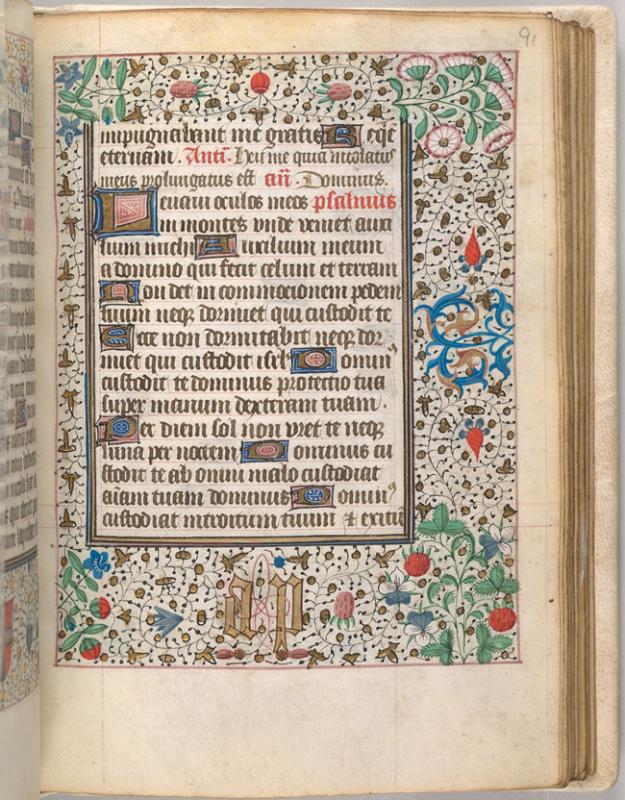 91
impugnabant me gratis Reqe
eternam. Antī. Heu me quia incolatus
meus prolungatus est añ. Dominus.
Levaui oculos meos psalmus
in montes vnde veniet auxi
lium michi Auxilium meum
a domino qui fecit celum et terram
Non det in commocionem pedem
tuum neqꝫ dormiet qui custodit te
Ecce non dormitabit neqꝫ dor
miet qui custodit isrl' Dominꝰ
custodit te dominus protectio tua
super manum dexteram tuam.
Per diem sol non vret te neqꝫ
luna per noctem Dominus cu
stodit te ab omni malo custodiat
aīam tuam dominus Dominꝰ
custodiat introitum tuum & exitū
a p